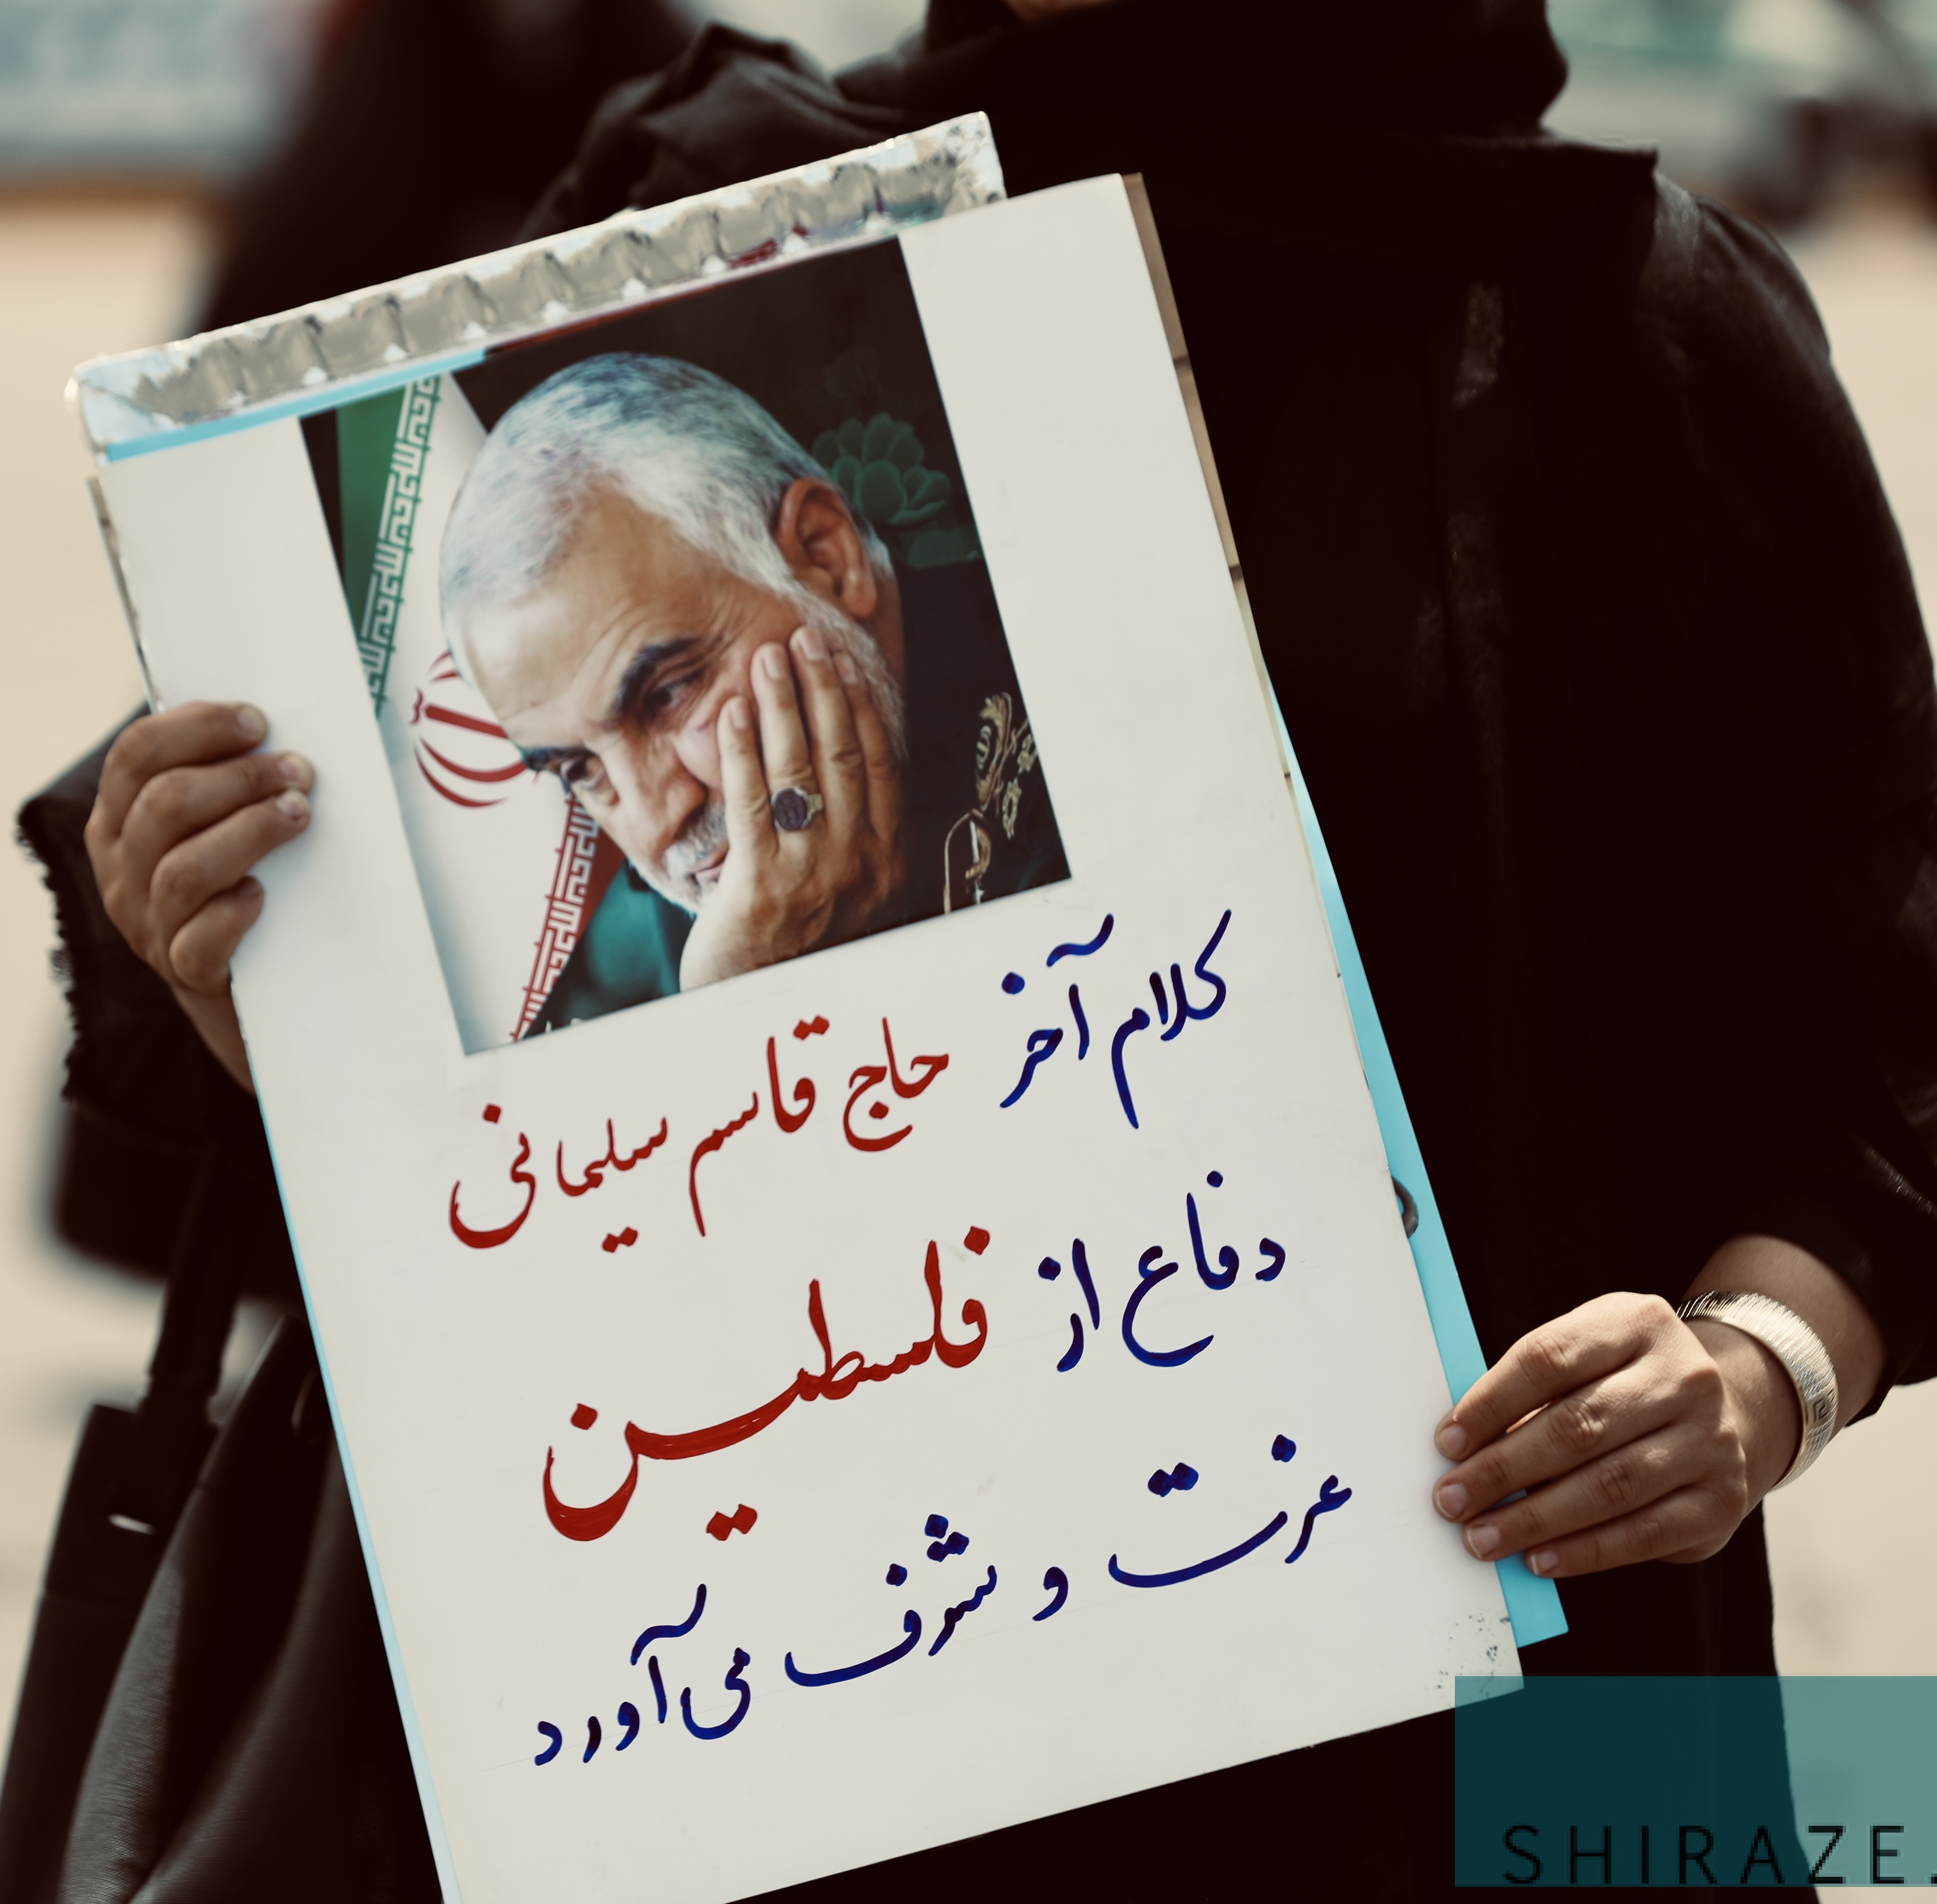 کلام آخر حاج قاسم سلیمانی
دفاع از فلسطین
عزت و شرف می‌آورد
SHIRAZE.